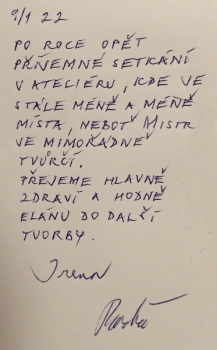 9/1 22
PO ROCE OPĚT
PŘÍJEMNÉ SETKÁNÍ
V ATELIÉRU, KDE VE
STÁLE MÉNĚ A MÉNĚ
MÍSTA, NEBOŤ MISTR
VE MIMOŘÁDNĚ
TVŮRČÍ.
PŘEJEME HLAVNĚ
ZDRAVÍ A HODNĚ
ELÁNU DO DALŠÍ
TVORBY.